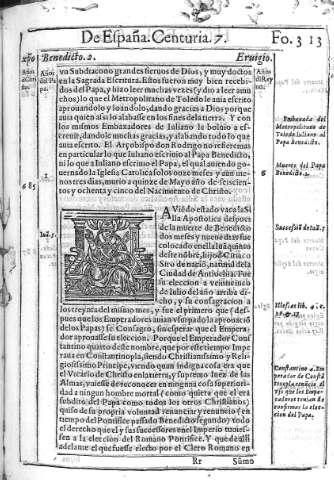 De España. Centuria. 7. Fo. 313
Benedicto. 2. Eruigio.
vn Subdiacono grandes sieruos de Dios, y muy doctos
en la Sagrada Escritura. Estos fueron muy bien recebi-
dos del Papa, y hizo leer muchas vezes (y dio a leer a mu
chos) lo que el Metropolitano de Toledo le auia escrito
aprouandolo y loandolo, dando gracias a Dios porque
auia quien assi lo alabasse en los fines dela tierra. Y con
los mismos Embaxadores de Iuliano le boluio a es-
creuir, dandole muchas gracias, y alabando todo lo que
auia escrito. El Arçobispo don Rodrigo no refiere mas
en particular lo que Iuliano escriuio al Papa Benedicto,
ni lo que a Iuliano escriuio el Papa, el qual auiendo go
uernado la Iglesia Catolica solos onze meses y aun me-
nos tres dias, murio a quinze de Mayo año de seiscien-
tos y ochenta y cinco del Nacimento de Christo.
Embaxada del
Metropolitano de
Toledo Iuliano al
Papa Benedicto.
Muerte del Papa
Benedicto. 2.
685
AViedo estado vaca la Si
lla Apostolica despues
de la muerte de Benedicto
dos meses y nueue dias fue
colocado en ella Iuan quinto
deste nombre, hijo de Ciriaco
Siro de nacio, natural de la
Ciudad de Antiochia. Fue
su eleccion a veintinueue
de Iulio del año arriba di-
cho, y su consagracion a
los treynta del mismo mes, y fue el primero que (des-
pues que los Emperadores auian vsurpado la aprouació
de los Papas) se Consagro, sin esperar que el Empera-
dor aprouasse su eleccion: Porque el Emperador Cons
tantino quarto deste nombre, que por este tiempo Impe
raua en Constantinopla, siendo Christianissimo y Reli-
giosissimo Principe, viendo quan indigna cosa era que
el Vicario de Christo en la tierra, y supremo Iuez de las
Almas, vuiesse de reconocer en ninguna cosa superiori-
dad a ningun hombre mortal (como quiere que el era
subdito del Papa como todos los otros Christianos)
quiso de su propria voluntad renunciar y renuncio (en
tiempo del Pontifice passado Benedicto segundo) todo
el derecho que el y sus successores en el Imperio tuuies
sen a la eleccion del Romano Pontifice. Y que de alli
adelante el que fuesse electo por el Clero Romano en
Rr Sumo